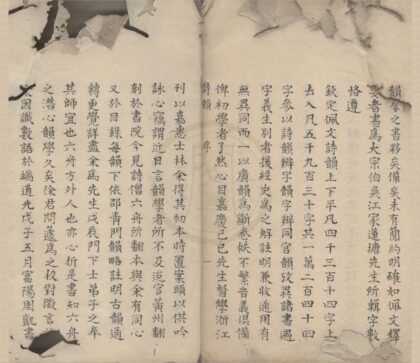 韻學之書夥矣備矣未有簡約明確如佩文釋
要者書爲大宗伯吳江家蓮塘先生所輯字數
恪遵
欽定佩文詩韻上下平凡四千三百十四字上
去入凡五千九百三十字共一萬二百四十四
字參以詩韻辨字韻字辨同官韻攷異諸書遇
字義生别者援經史爲之解註明兼收通用有
無異同而一以廣韻爲斷卷帙不繁音義俱備
俾初學者了然心目嘉慶己巳先生督學浙江
詩韻 序 一
刊以嘉惠士林余得其初本時置案頭以供吟
詠心竊謂近日言韻學者所不及迨官黄州翻
刻於書院今見詩僧六舟所翻本與余有同心
又於目錄每韻下依邵青門韻略註明古韻通
轉更覺詳盡余爲先生戊辰門下士弟子之奉
其師宜也六舟方外人也亦心折是書知六舟
之潛心韻學久矣徐君問蘧爲之校對徵言
因識數語於端道光戊子五月富陽周凱書